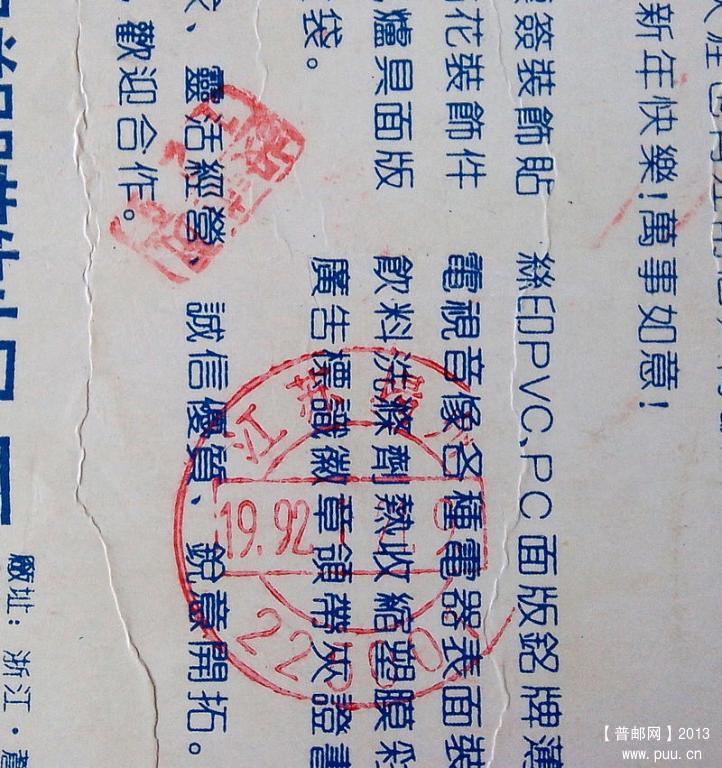 新年快樂!萬事如意!
簽裝飾貼　絲印PVC、PC面版銘牌薄
花裝飾件　電視音像各種電器表面裝
爐具面版　飲料洗滌劑熱收縮塑膜彩
袋。　廣告標識徽章領帶夾證書
、靈活經營、誠信優質、銳意開拓。
歡迎合作。
廠址:浙江·
江苏
19.92
22
【普邮网】2013
www.puu.cn